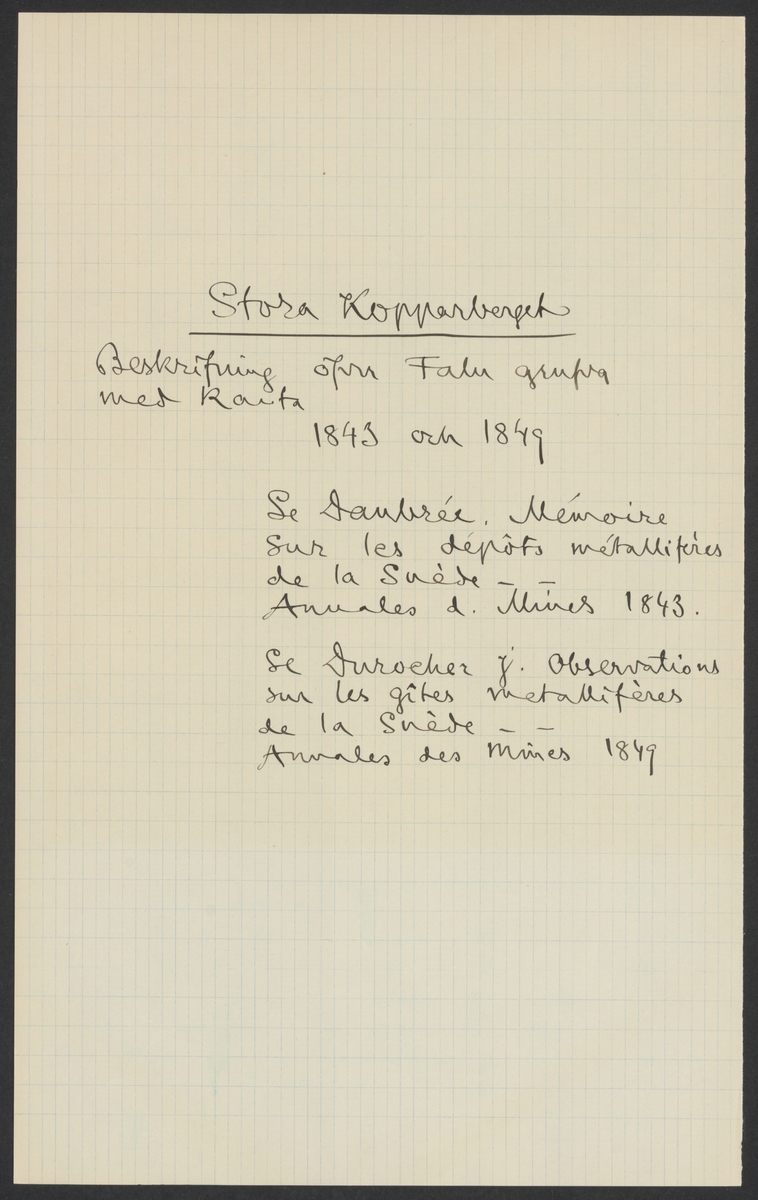 Stora Kopparberget
Beskrifning öfver Falu grufva
med Karta
1843 och 1849
Se Daubrée. Mémoire
sur les dépôts métallifères
de la Suède – –
Annales d. Mines 1843.
Se Durocher J. Observations
sur les gîtes metallifères
de la Suède – –
Annales des Mines 1849